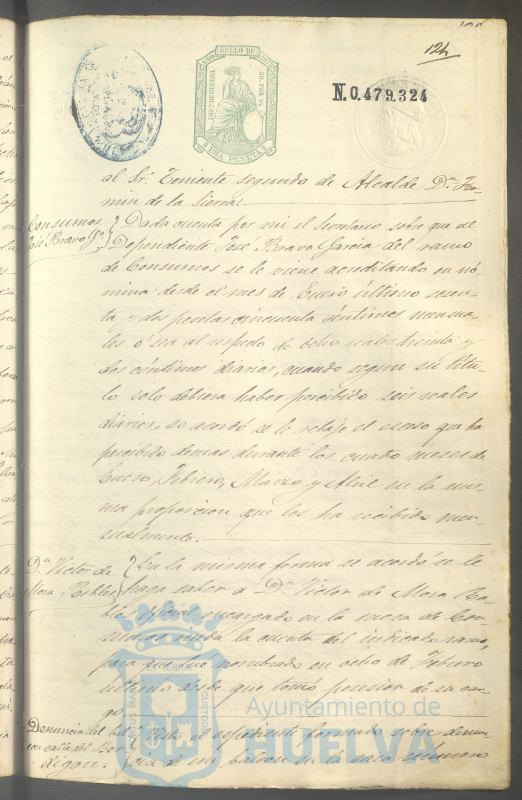 124
SELLO 10º
IMPTO DE GUERRA
UNA PESETA
N.0.479.324
al Sr. Teniente segundo de Alcalde Dn. Fer-
min de la Sierra.
Consumos.
José Bravo Ga.
Dada cuenta por mi el Secretario sobre que al
Dependiente José Bravo Garcia del ramo
de Consumos se le viene acreditando en nó-
mina desde el mes de Enero último sesen-
ta y dos pesetas cincuenta céntimos mensua-
les o sea al respecto de ocho reales treinta y
dos céntimos diarios, cuando segun su títu-
lo solo debiera haber percibido seis reales
diarios, se acordó se le rebaje el esceso que ha
percibido demas durante los cuatro meses de
Enero, Febrero, Marzo y Abril en la mis-
ma proporcion que los ha recibido men-
sualmente.
Dn. Victor de
Mora Robles
En la misma forma se acordó se le
haga saber a Dn. Victor de Mora Ro-
bles oficial encargado en la mesa de Con-
sumos rinda la cuenta del indicado ramo,
para que fue nombrado en ocho de Febrero
último desde que tomó posesion de su car-
go.
Denuncia del bal-
con calle del Bor-
digon.
Visto el espediente formado sobre denun-
cia de un balcon en la casa número
Ayuntamiento de
HUELVA